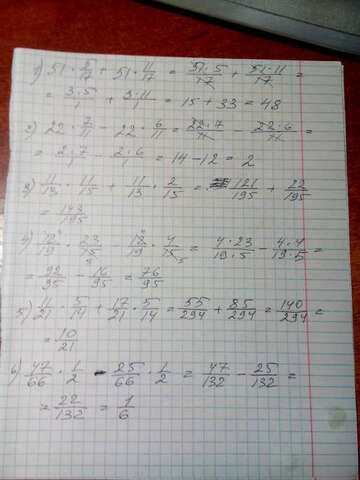 1) 51 · 5/17 + 51 · 11/17 = 51·5/17 + 51·11/17 =
= 3·5/1 + 3·11/1 = 15 + 33 = 48
2) 22 · 7/11 - 22 · 6/11 = 22·7/11 - 22·6/11 =
= 2·7 - 2·6 = 14 - 12 = 2
3) 11/13 · 11/15 + 11/13 · 2/15 = 121/195 + 22/195
= 143/195
4) 12/19 · 23/15 - 12/19 · 4/15 = 4·23/19·5 - 4·4/19·5 =
= 92/95 - 16/95 = 76/95
5) 11/21 · 5/14 + 17/21 · 5/14 = 55/294 + 85/294 = 140/294 =
= 10/21
6) 47/66 · 1/2 - 25/66 · 1/2 = 47/132 - 25/132 =
= 22/132 = 1/6